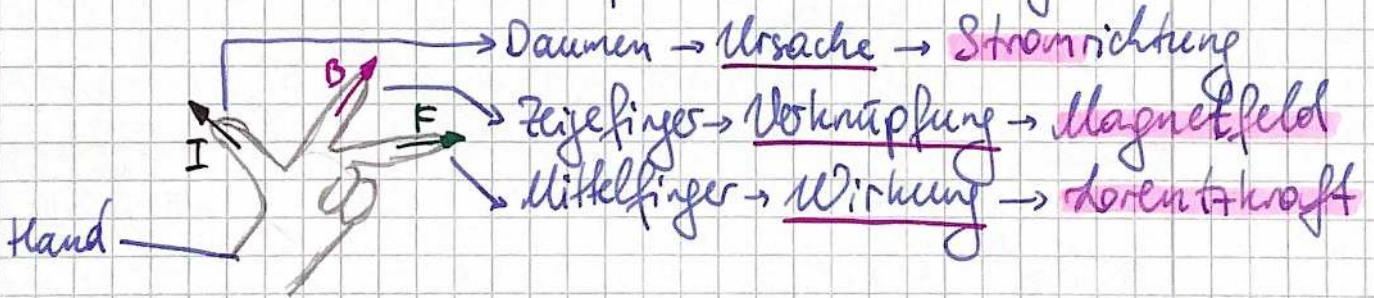 Daumen → Ursache → Stromrichtung
B
Zeigefinger → Verknüpfung → Magnetfeld
F
I
Mittelfinger → Wirkung → Lorentzkraft
Hand